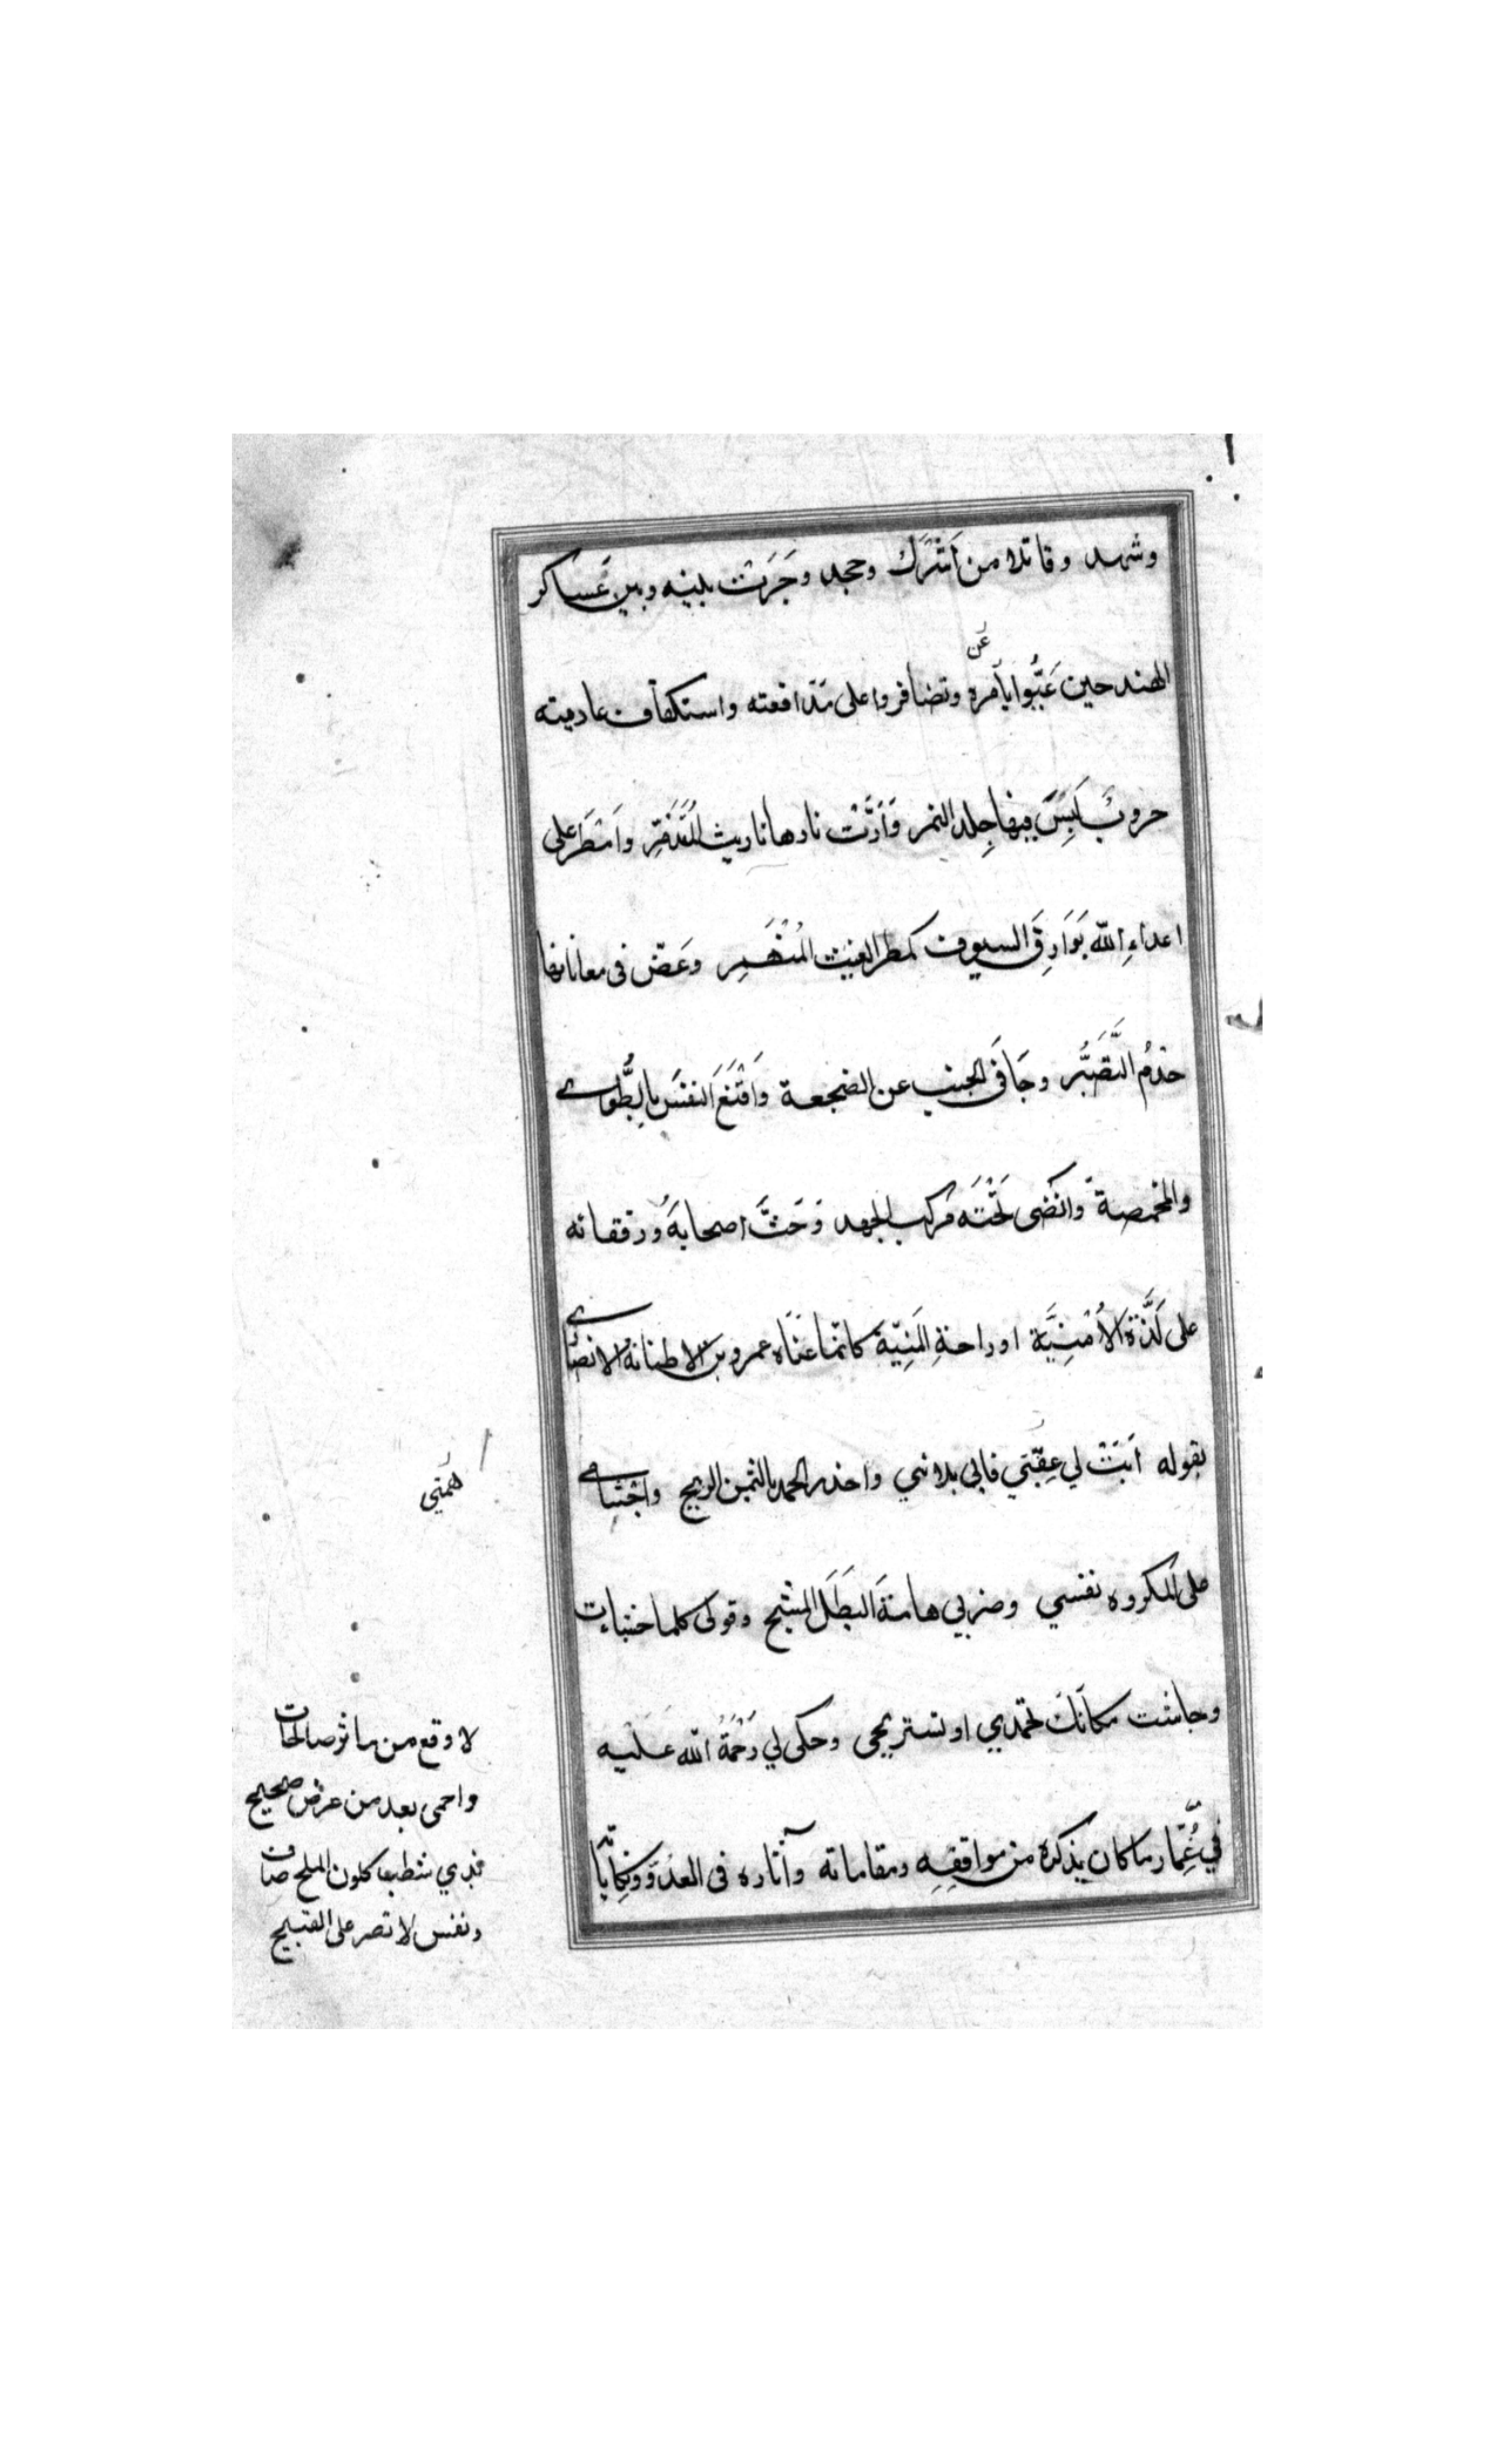 وشهد وقاتلا من اَشْرَك وجحد وجَرَت بينه وبين عَساكر
عَن
الهند حين عَبُّوا بأمره وتضافروا على مدافعته واستكفاف عاديته
حروبٌ لَبِسَ فيها جِلد النمر وَاَرَّثَت نارها تاريث المُتَذَمِّرِ واَمْطَرَ على
اعداءِ الله بَوَارِقَ السيوف كمطر الغيث المُنْهَمِرِ وعَضّ فى معاناتها
جذمُ التَّصَبُّر وجَافَى الجنب عن الضجعة وَاَقْنَعَ النفسَ بالطَّوى
والمخمصة وَانضى تَحْتَه مركب الجهد وَحَثَّ اصحابهُ ورفقاته
على لَذَّةِ الأُمْنِيَّة او راحةِ المَنِيّة كانّما عَنَاه عمرو بن الاطنابة الانصارى
بقوله اَبَتْ لي عِفَّتي فابى بلائي واخذ الحمد بالثمن الربيح واجْشامى
على المكروه نفسي وضربي هامةَ البَطَل المشيح وقولى كلما جشات
وجاشت مكانَك تحمدي او تستريحى وحكى لي رَحْمَةُ الله عليه
في غُمار ما كان يذكره من مواقفِه ومقاماته وآثاره فى العدُوِّ ونِكاياته
همتي
لادفع من ماثر صالحات
واحمى بعد من عرض صحيح
بذي شطب كلون الملح صاف
ونفس لا تصر على القبيح